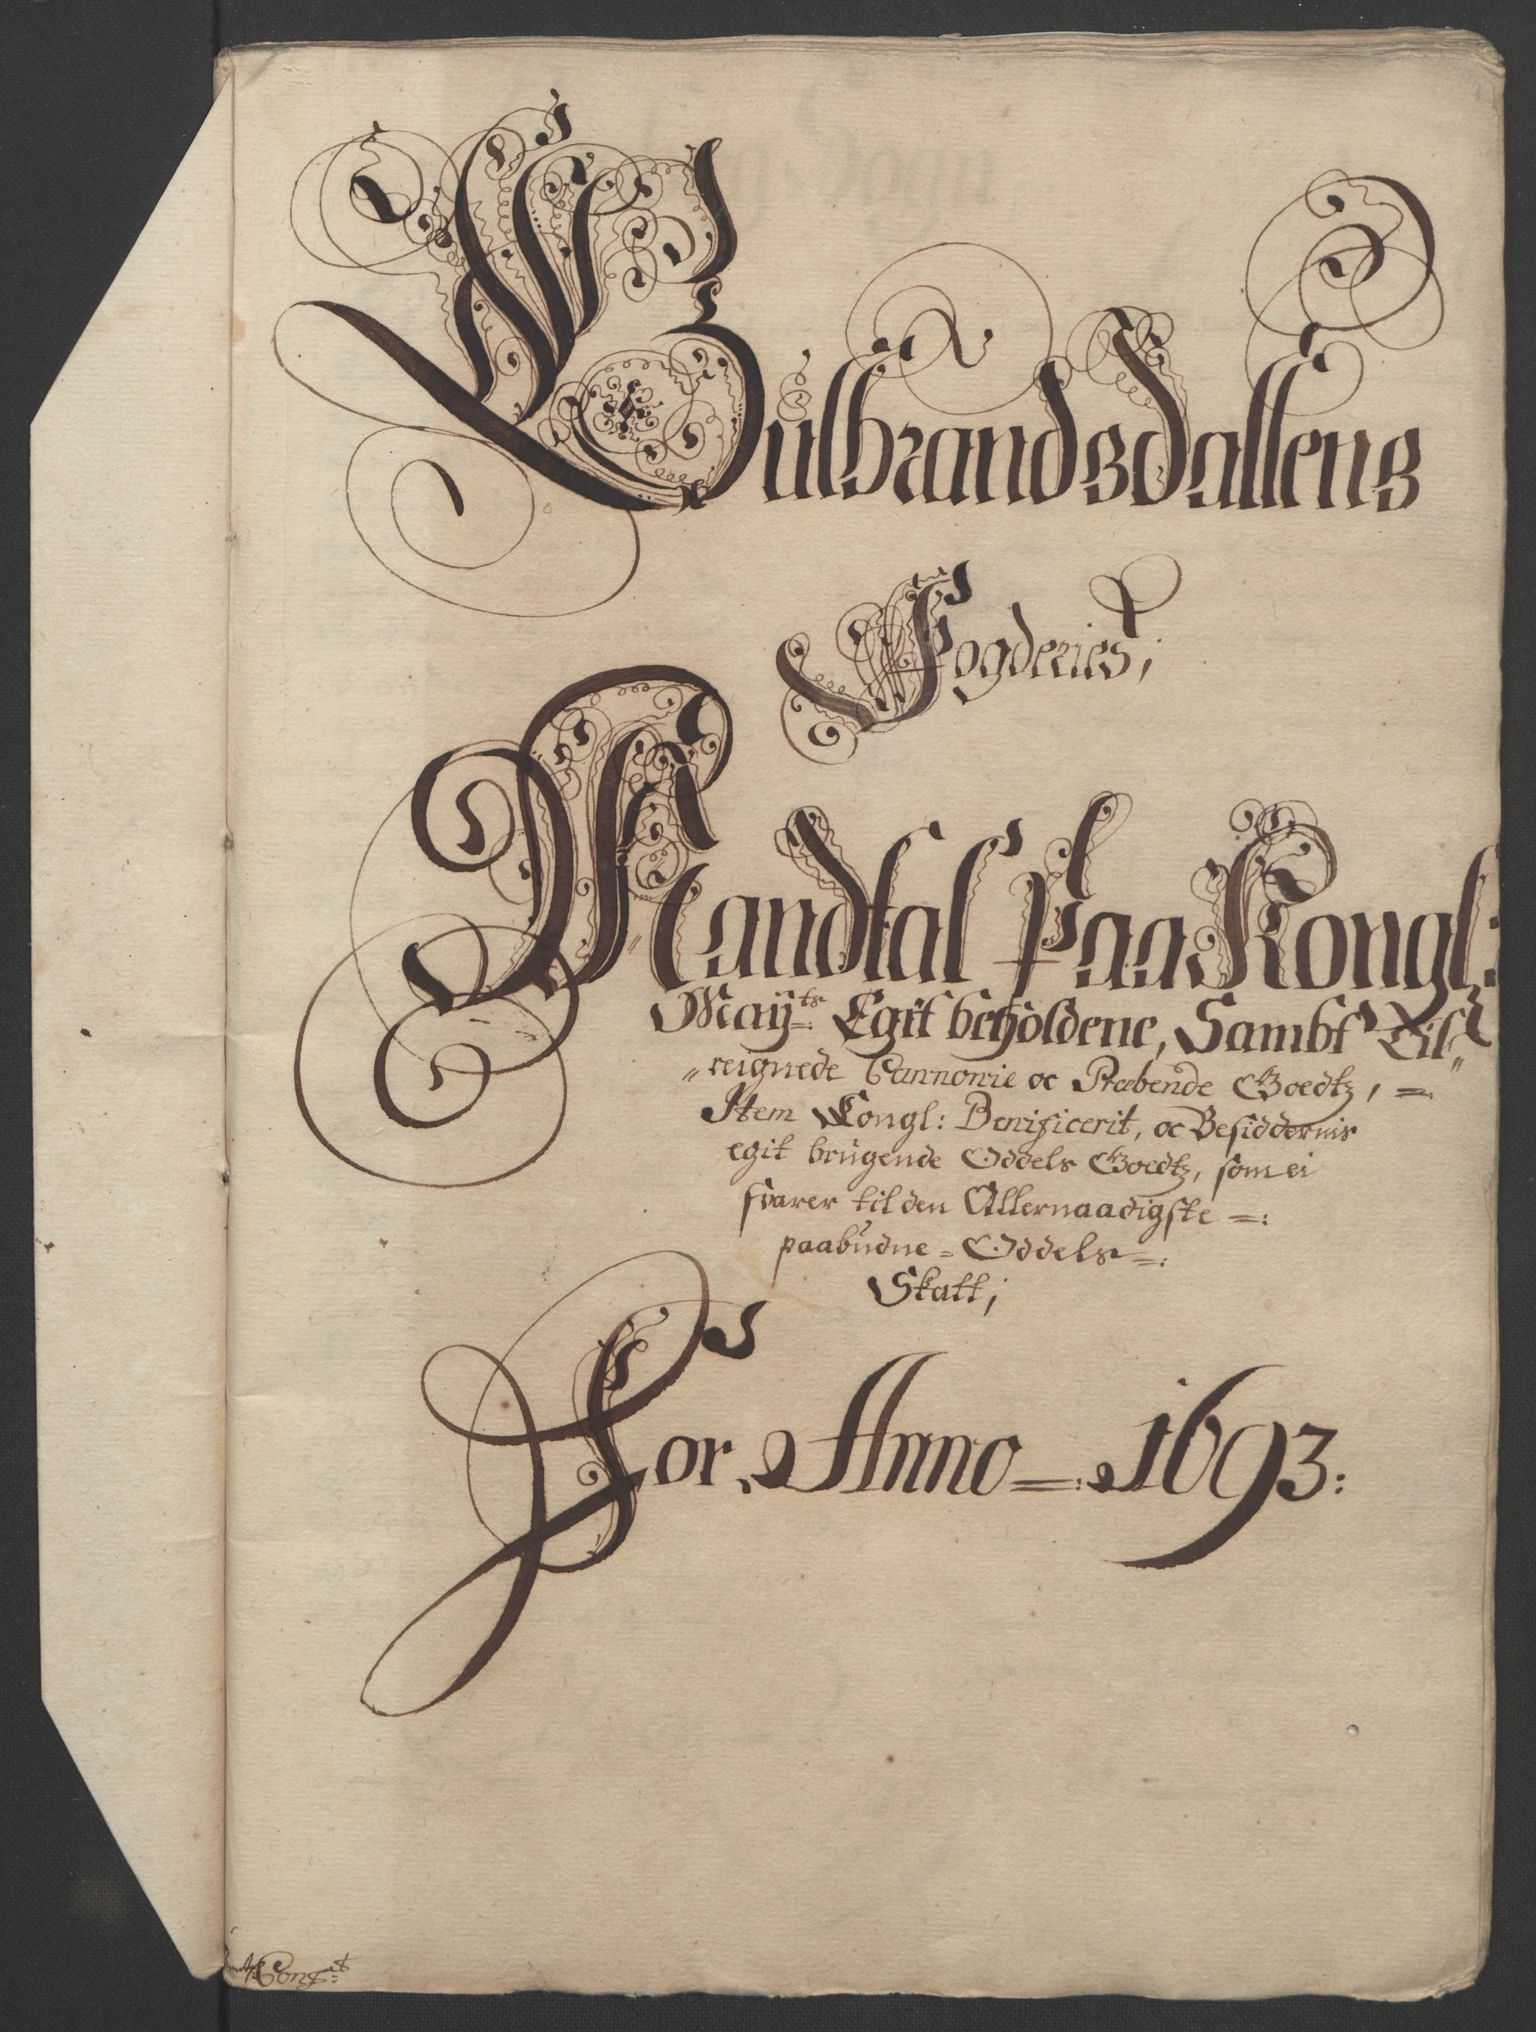 Gulbrandsdallens
Fogderies;
Mandtal paa Kongl:
Mayts: Egit beholdene, Sambt Til„
„reignede Cannonie oc Præbende Goedtz, =
Item Kongl: Benificerit, oc Besiddernis
egit brugende Oddels Goedtz, som ei
svarer til den Allernaadigste =:
paabudne = Oddels =:
Skatt;
For Anno =: 1693: